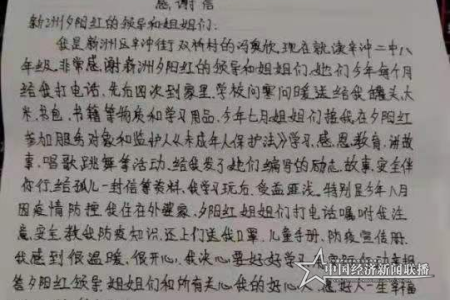 感谢信
新洲夕阳红的领导和姐姐们:
我是新洲区辛冲街双桥村的冯爱欣,现在就读辛冲二中八
年级,非常感谢新洲夕阳红的领导和姐姐们,她们今年每个月
给我打电话,先后四次到家里、学校问寒问暖送给我罐头大
米、书包、书籍等物资和学习用品,今年七月姐姐们接我在夕阳红
参加服务对象和监护人《未成年人保护法》学习,感恩教育,讲故
事、唱歌跳舞等活动,给我发了她们编写的励志故事,安全伴
你行,给孤儿一封信等资料,我学习玩与,受益匪浅。特别是今年八月
因疫情防控,我住在外婆家,夕阳红姐姐们打电话嘱咐我注
意安全,教我防疫知识,还上门送我口罩、儿童手册、防疫宣传册,
我感到很温暖,很开心,我决心要好好学习,用实际行动来报
答夕阳红领导姐姐们和所有关心我的好心人,愿好人一生幸福
中国经济新闻联播